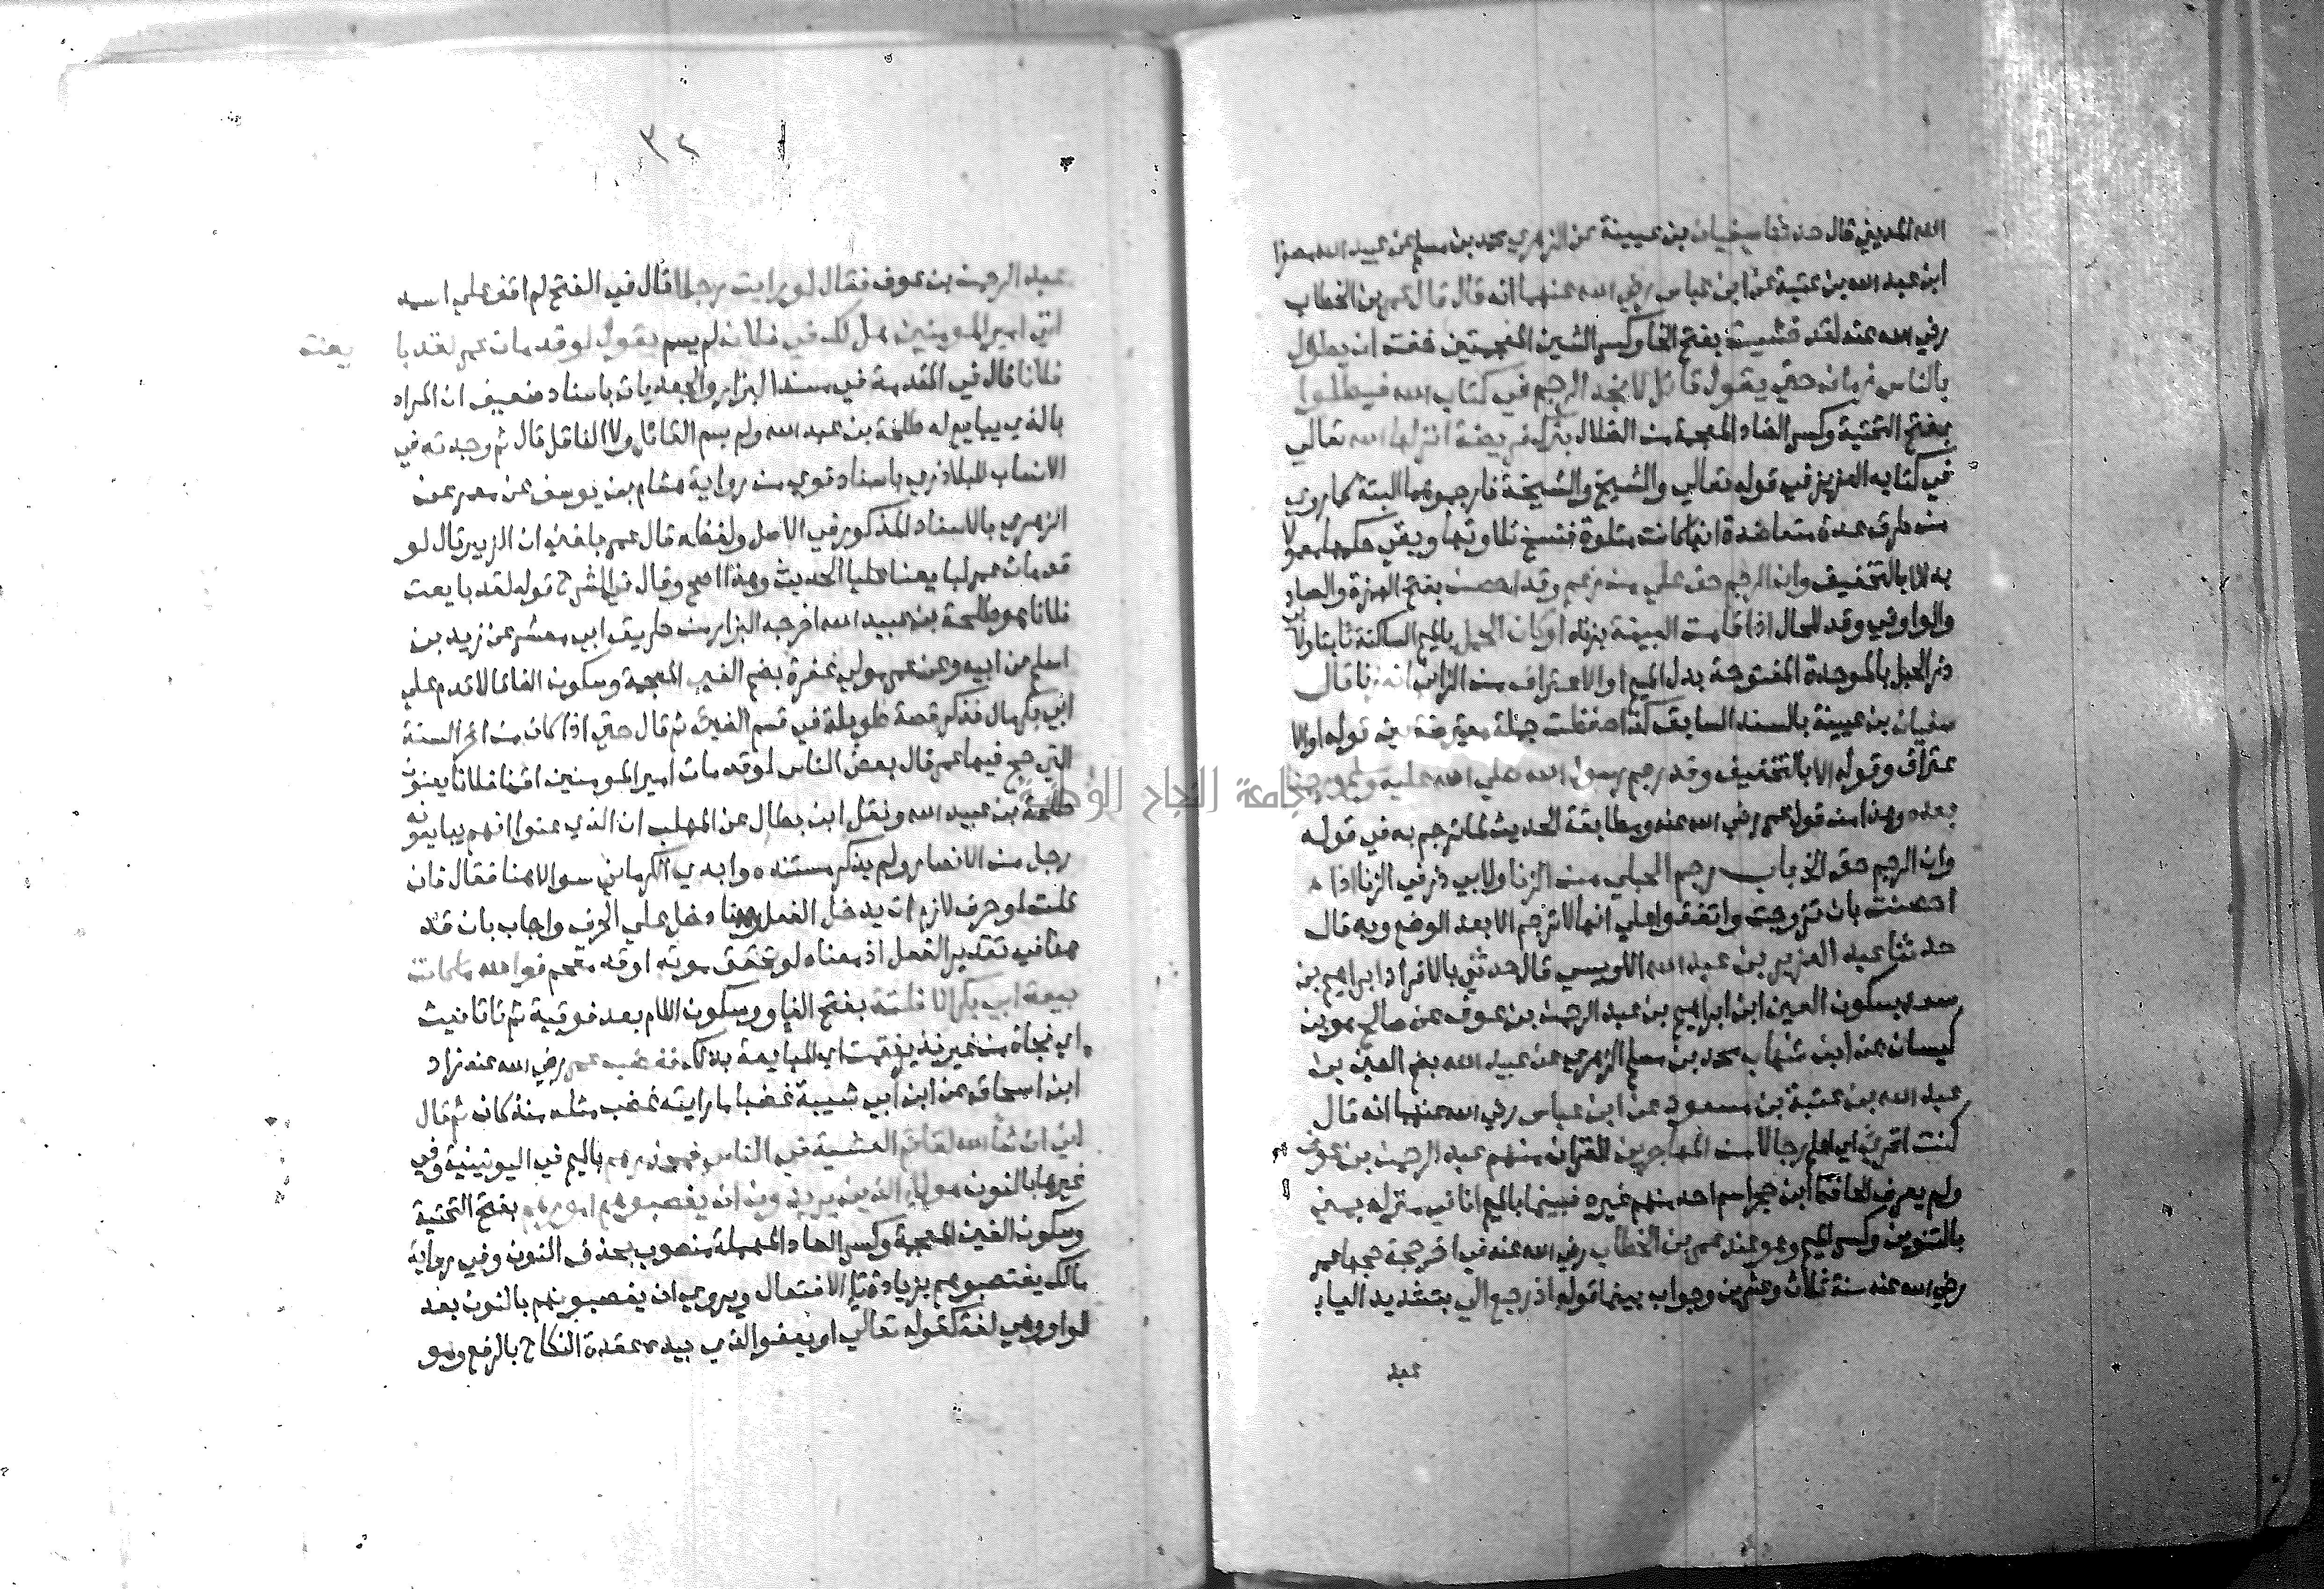 الله المديني قال حدثنا سفيان بن عيينة عن الزهري محمد بن مسلم عن عبيد الله مصغرا
ابن عبد الله بن عتبة عن ابن عباس رضي الله عنهما انه قال قال عمر بن الخطاب
رضي الله عنه لقد خشيت بفتح الخا وكسر الشين المعجمتين خفت ان يطول
بالناس زمان حتي يقول قائل لا نجد الرجم في كتاب الله فيضلوا
بفتح التحتية وكسر الضاد المعجمة من الضلال بترك فريضة انزلها الله تعالي
في كتابه العزيز في قوله تعالي والشيخ والشيخة فارجموهما البتة كما روي
من طرق عدة متعاضدة انها كانت متلوة فنسخ تلاوتها وبقي حكمها معمولا
به الا بالتخفيف وان الرجم حق علي من زني وقد احصن بفتح الهمزة والصاد
والواو في وقد للحال اذا قامت البينة بزناه او كان الحمل بالميم الساكنة ثابتا ولابي
ذر الحبل بالموحدة المفتوحة بدل الميم او الاعتراف من الزاني انه زنا قال
سفيان بن عيينة بالسند السابق كذا حفظت جملة معترضة بين قوله او الا
عتراف وقوله الا بالتخفيف وقد رجم رسول الله صلي الله عليه وسلم ورجمنا
بعده وهذا من قول عمر رضي الله عنه ومطابقة الحديث لما ترجم به في قوله
وان الرجم حق الخ باب رجم الحبلي من الزنا ولابي ذر في الزنا اذا
احصنت بان تزوجت واتفقوا علي انها لا ترجم الا بعد الوضع وبه قال
حدثنا عبد العزيز بن عبد الله الاويسي قال حدثني بالافراد ابراهيم بن
سعد بسكون العين ابن ابراهيم بن عبد الرحمن بن عوف عن صالح هو بن
كيسان عن ابن شهاب محمد بن مسلم الزهري عن عبيد الله بضم العين بن
عبد الله بن عتبة بن مسعود عن ابن عباس رضي الله عنهما انه قال
كنت اقري اي اعلم رجالا من المهاجرين القران منهم عبد الرحمن بن عوف
ولم يعرف الحافظ ابن حجر اسم احد منهم غيره فبينما بالميم انا في منزله بمني
بالتنوين وكسر الميم وهو عند عمر بن الخطاب رضي الله عنه في اخر حجة حجها عمر
رضي الله عنه سنة ثلاث وعشرين وجواب بينما قوله اذ رجع الي بتشديد اليا
عبد
٣٢
عبد الرحمن بن عوف فقال لو رايت رجلا قال في الفتح لم اقف علي اسمه
اتي امير المومنين هل لك في فلان لم يسم يقول لو قد مات عمر لقد با يعت
فلانا قال في المقدمة في مسند البزار والجعديات باسناد ضعيف ان المراد
بالذي يبايع له طلحة بن عبيد الله ولم يسم القائل ولا الناقل قال ثم وجدته في
الانساب للبلاذري باسناد قوي من رواية هشام بن يوسف عن معمر عن
الزهري بالاسناد المذكور في الاصل ولفظه قال عمر بلغني ان الزبير قال لو
قد مات عمر لبايعنا عليا الحديث وهذا اصح وقال في الشرح قوله لقد بايعت
فلانا هو طلحة بن عبيد الله اخرجه البزار من طريق ابي معشر عن زيد بن
اسلم عن ابيه وعن عمر مولي غفرة بضم الغين المعجمة وسكون الفا قالا قدم علي
ابي بكر مال فذكر قصة طويلة في قسم الفيء ثم قال حتي اذا كان من اخر السنة
التي حج فيها عمر قال بعض الناس لو قد مات امير المومنين اقمنا فلانا يعنون
طلحة بن عبيد الله ونقل ابن بطال عن المهلب ان الذي عنوا انهم يبايعونه
رجل من الانصار ولم يذكر مستنده وابدي الكرماني سوالا هنا فقال فان
قلت لو حرف لازم ان يدخل الفعل وهنا دخل علي الحرف واجاب بان قد
هنا في تقدير الفعل اذ معناه لو تحقق موته او قد مقحم فوالله ما كانت
بيعة ابي بكر الا فلتة بفتح الفا وسكون اللام بعد فوقية ثم تا تانيث
اي فجاة من غير تدبر فتمت اي المبايعة بذلك فغضب عمر رضي الله عنه زاد
ابن اسحاق عن ابن ابي شيبة غضبا ما رايته غضب مثله منذ كان ثم قال
اني ان شا الله لقائم العشية في الناس فمحذرهم بالميم في اليونينية وفي
غيرها بالنون هولاء الذين يريدون ان يغصبوهم امورهم بفتح التحتية
وسكون الغين المعجمة وكسر الصاد المهملة منصوب بحذف النون وفي رواية
مالك يغتصبوهم بزيادة تا الافتعال ويروي ان يغصبونهم بالنون بعد
الواو وهي لغة كقوله تعالي او يعفو الذي بيده عقدة النكاح بالرفع وهو